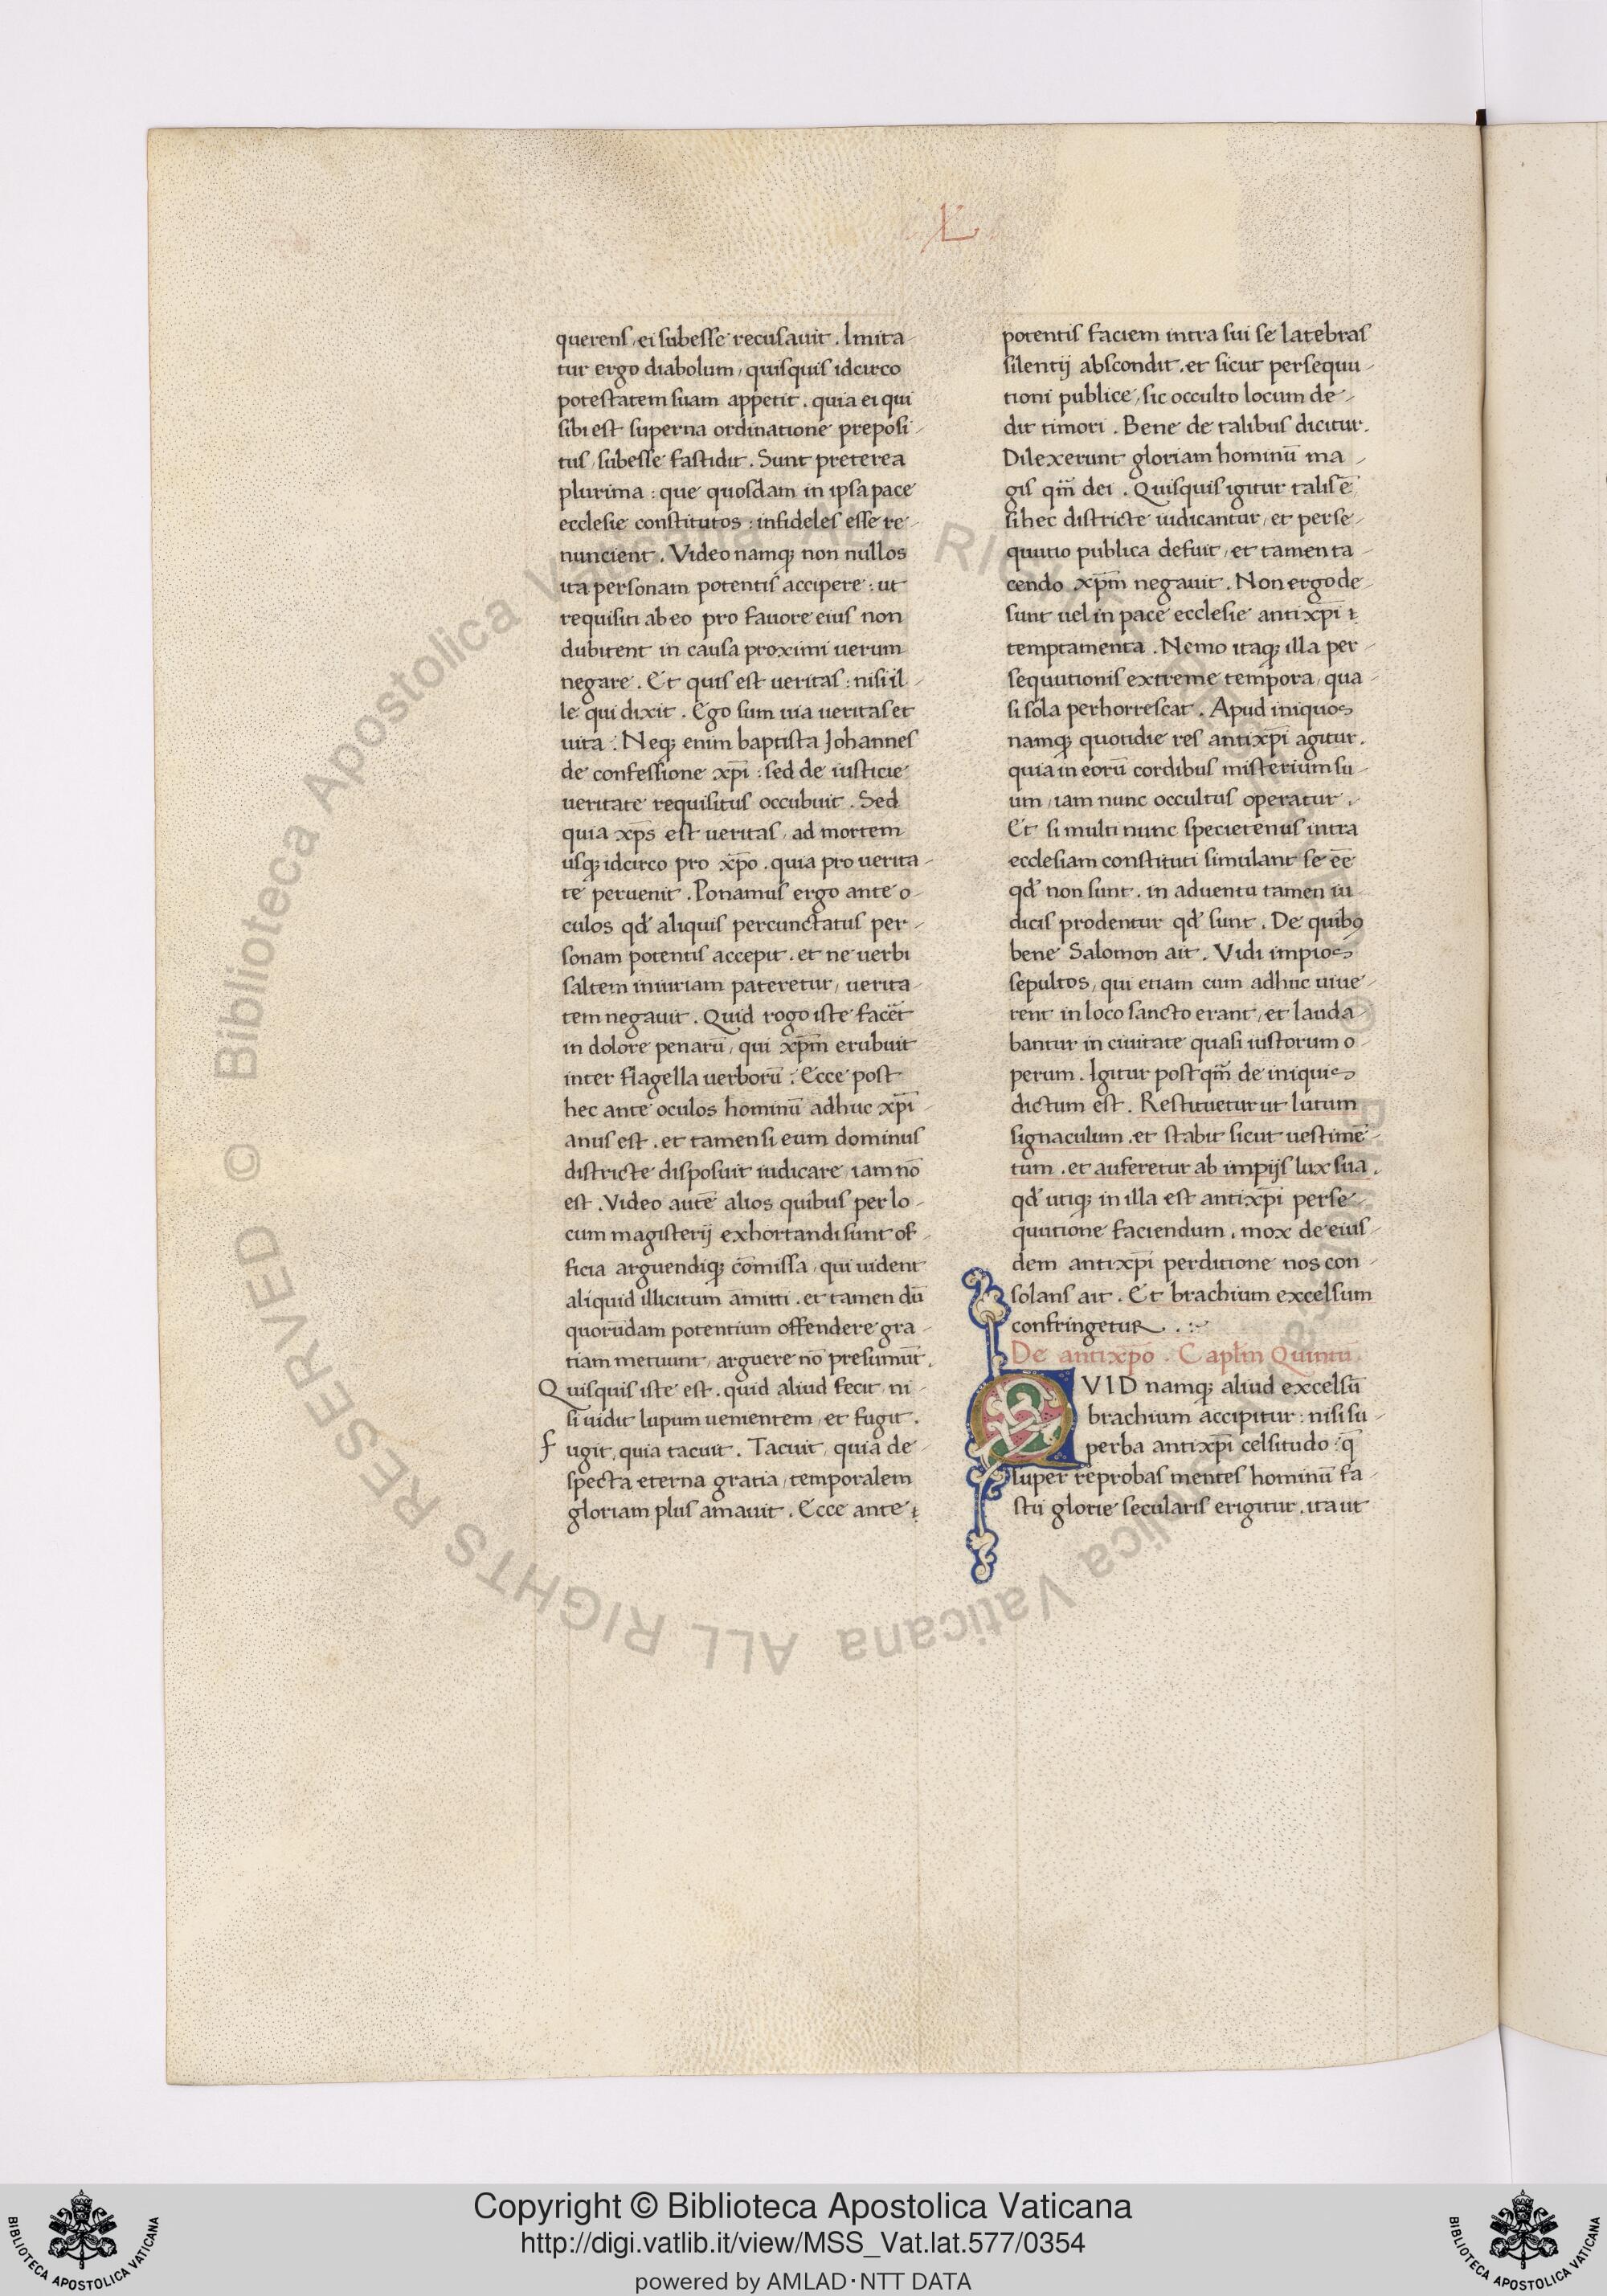 L
querens, ei subesse recusauit. Imita-
tur ergo diabolum, quisquis idcirco
potestatem suam appetit. quia ei qui
sibi est superna ordinatione preposi-
tus, subesse fastidit. Sunt preterea
plurima: que quosdam in ipsa pace
ecclesie constitutos: infideles esse re-
nuncient. Video namq; non nullos
ita personam potentis accipere: ut
requisiti ab eo pro fauore eius non
dubitent in causa proximi uerum
negare. Et quis est ueritas: nisi il-
le qui dixit. Ego sum uia ueritas et
uita. Neq; enim baptista Johannes
de confessione xp̄i: sed de iusticie
ueritate requisitus occubuit. Sed
quia xp̄s est ueritas, ad mortem
usq; idcirco pro xp̄o. quia pro uerita-
te peruenit. Ponamus ergo ante o-
culos qđ aliquis percunctatus per-
sonam potentis accepit. et ne uerbi
saltem iniuriam pateretur, uerita-
tem negauit. Quid rogo iste facēt
in dolore penarū, qui xp̄m erubuit
inter flagella uerborū. Ecce post
hec ante oculos hominū adhuc xp̄i-
anus est. et tamen si eum dominus
districte disposuit iudicare, iam nō
est. Video autē alios quibus per lo-
cum magisterij exhortandi sunt of-
ficia arguendiq; cōmissa, qui uident
aliquid illicitum amitti. et tamen dū
quorūdam potentium offendere gra-
tiam metuunt, arguere nō presumūt.
Quisquis iste est. quid aliud fecit, ni-
si uidit lupum uenientem, et fugit.
fugit, quia tacuit. Tacuit, quia de-
specta eterna gratia, temporalem
gloriam plus amauit. Ecce ante
potentis faciem intra sui se latebras
silentij abscondit. et sicut persequu-
tioni publice, sic occulto locum de-
dit timori. Bene de talibus dicitur.
Dilexerunt gloriam hominū ma-
gis qm̄ dei. Quisquis igitur talis ē
si hec districte iudicantur, et perse-
quutio publica defuit, et tamen ta-
cendo xp̄m negauit. Non ergo de-
sunt uel in pace ecclesie antixp̄i
temptamenta. Nemo itaq; illa per-
sequutionis extreme tempora, qua-
si sola perhorrescat. Apud iniquos
namq; quotidie res antixp̄i agitur.
quia in eorū cordibus misterium su-
um, iam nunc occultus operatur.
Et si multi nunc specietenus intra
ecclesiam constituti simulant se eē
qđ non sunt. in aduentu tamen iu-
dicis prodentur qđ sunt. De quibꝰ
bene Salomon ait. Vidi impios
sepultos, qui etiam cum adhuc uiue-
rent in loco sancto erant, et lauda-
bantur in ciuitate quasi iustorum o-
perum. Igitur post qm̄ de iniquis
dictum est. Restituetur ut lutum
signaculum. et stabit sicut uestime-
tum. et auferetur ab impijs lux sua.
qđ utiq; in illa est antixp̄i perse-
quutione faciendum. mox de eius-
dem antixp̄i perditione nos con-
solans ait. Et brachium excelsum
confringetur.
De antixp̄o. Caplm̄ Quintū.
QVID namq; aliud excelsū
brachium accipitur: nisi su-
perba antixp̄i celsitudo: q̄
super reprobas mentes hominū fa-
stu glorie secularis erigitur. ita ut
© Biblioteca Apostolica Vaticana ALL RIGHTS RESERVED
Copyright © Biblioteca Apostolica Vaticana
http://digi.vatlib.it/view/MSS_Vat.lat.577/0354
powered by AMLAD·NTT DATA
BIBLIOTECA APOSTOLICA VATICANA
BIBLIOTECA APOSTOLICA VATICANA